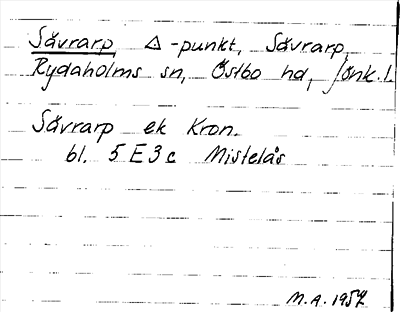 Sävrarp △ -punkt, Sävrarp,
Rydaholms sn, Östbo hd, Jönk. l.
Sävrarp ek Kron.
bl. 5 E 3 c Mistelås
M.A. 1957